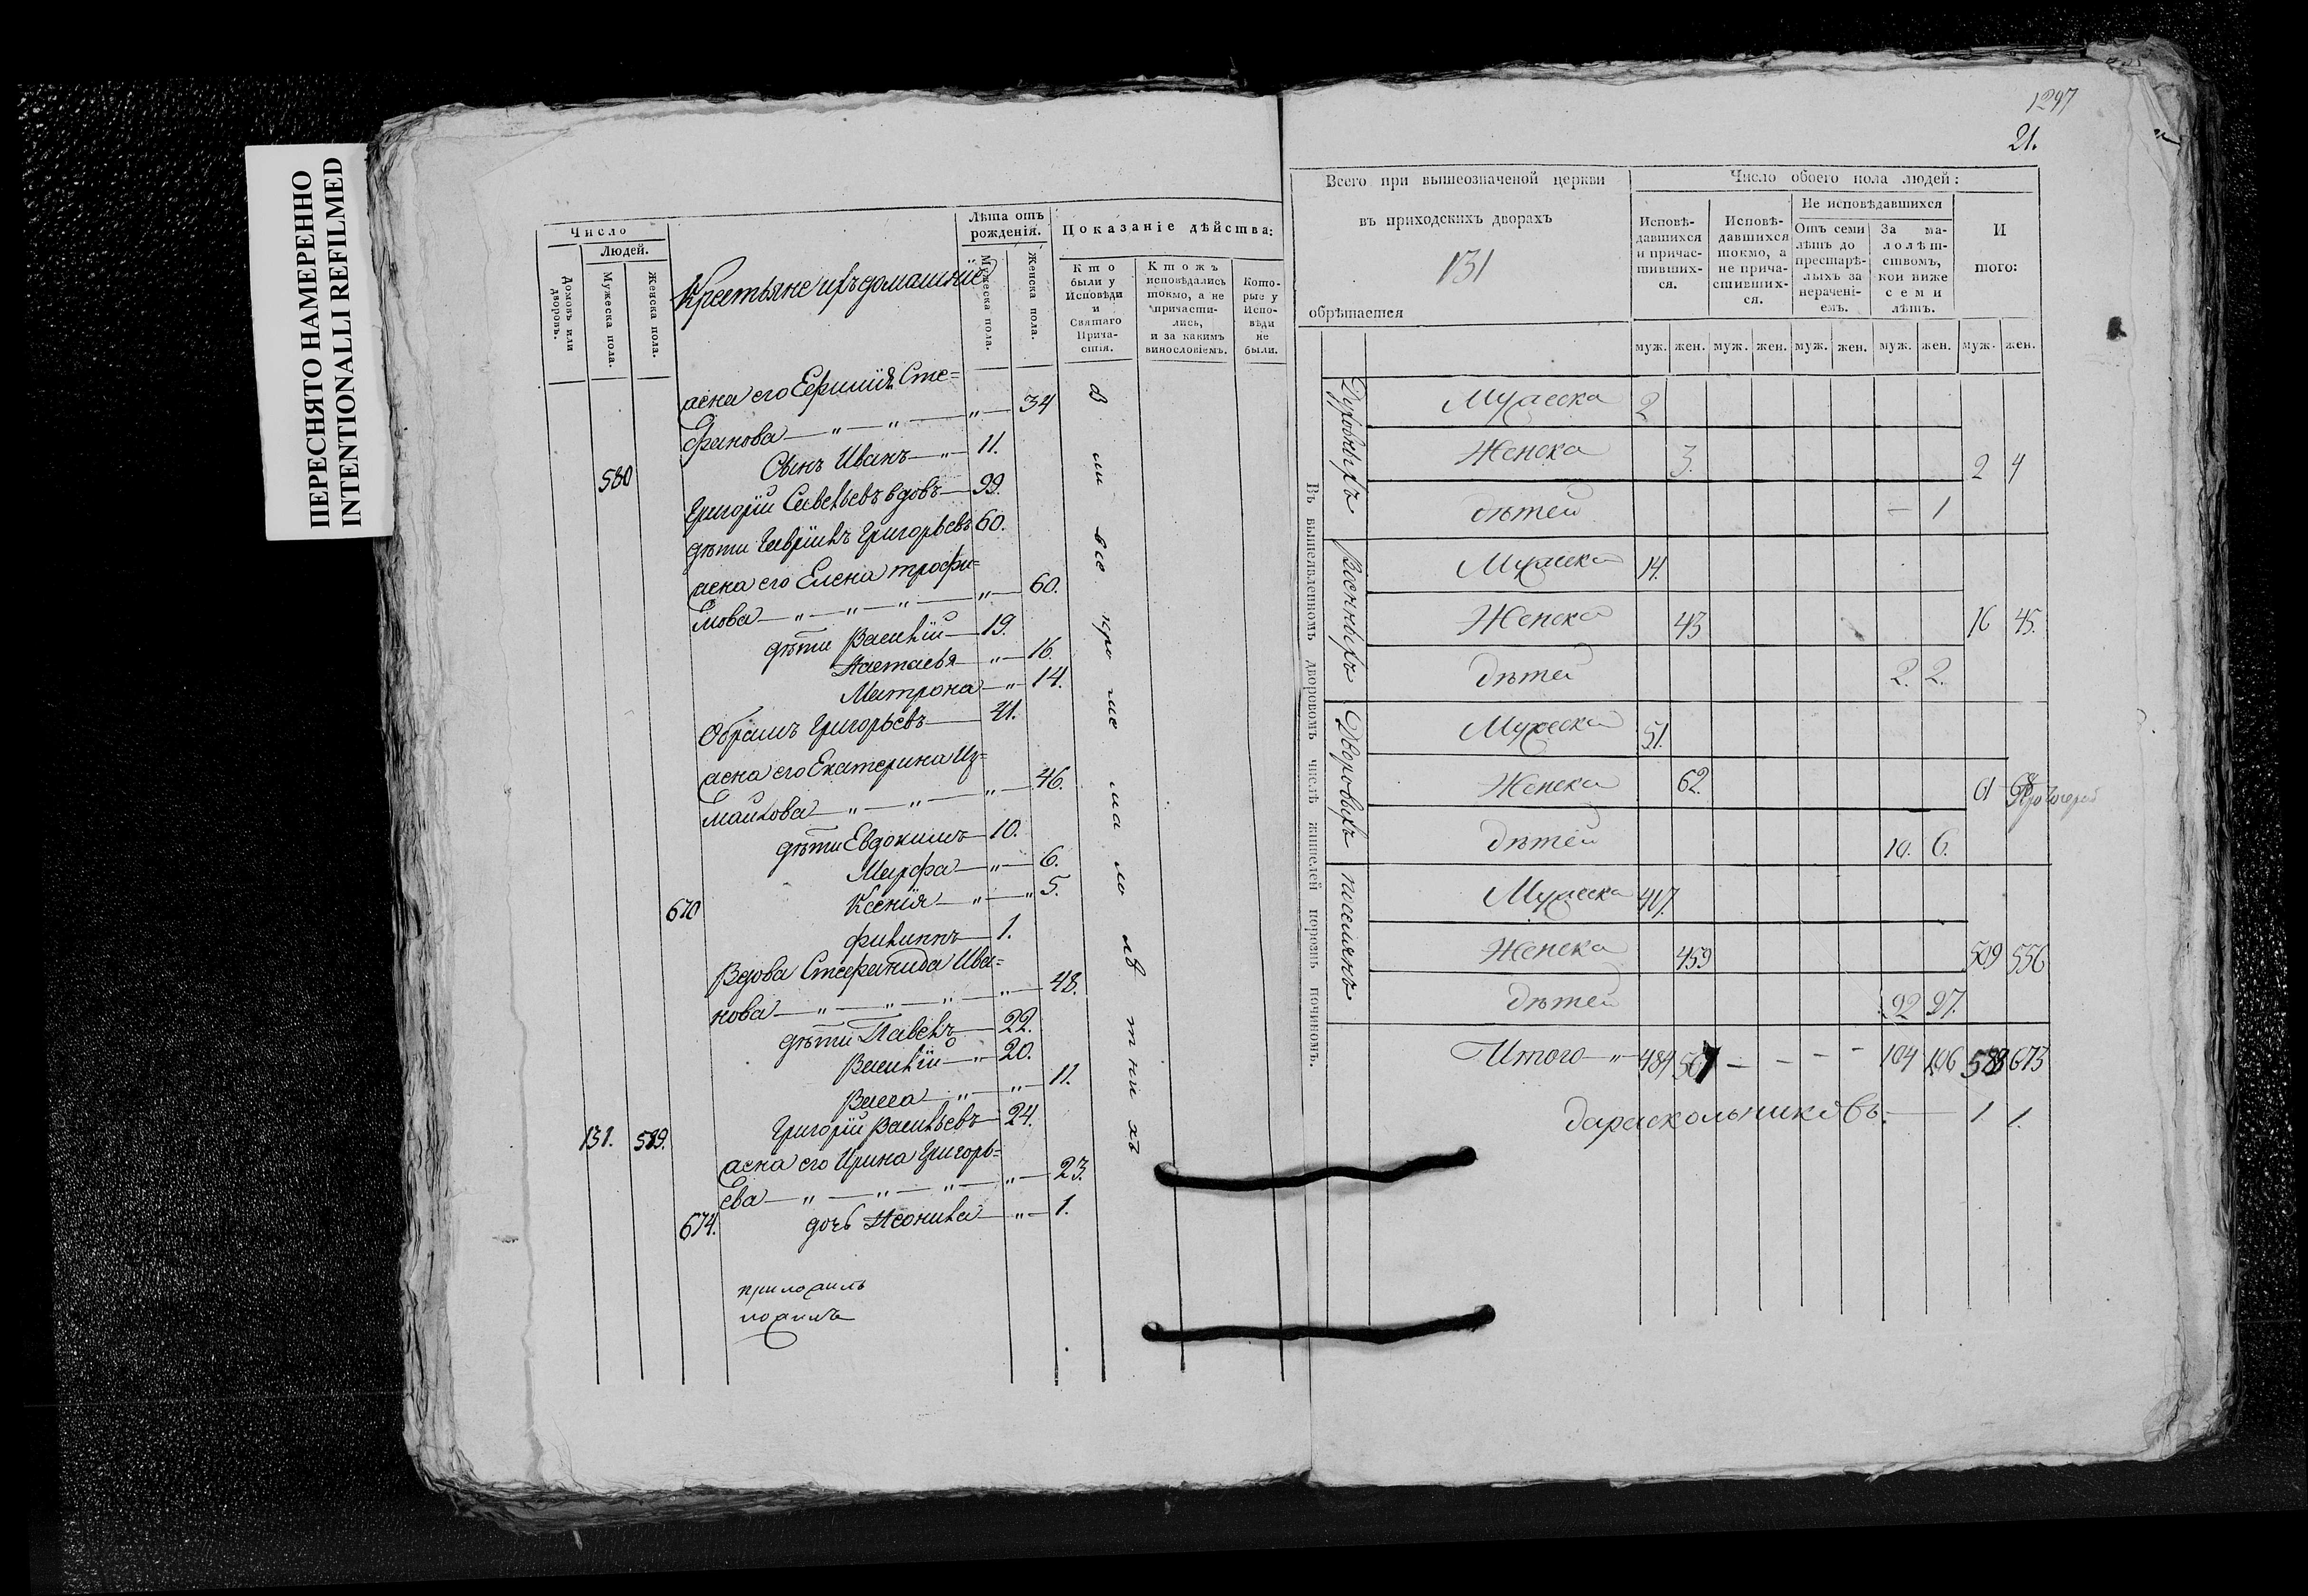 ПЕРЕСНЯТО НАМЕРЕННО
INTENTIONALLI REFILMED
Число
Людей.
Домовъ или дворовъ.
Мужеска пола.
Женска пола.
Крестьяне ихъ домашніе
Лѣта отъ рожденія.
Мужеска пола.
Женска пола.
Показаніе дѣйства:
Кто были у Исповѣди и Святаго Причастія.
Ктожъ исповѣдались токмо, а не причастились, и за какимъ винословіемъ.
Которые у Исповѣди не были.
жена его Ефимія Сте=
фанова — " — " — " — 34
Сынъ Иванъ — " — 11.
580 Григорій Савельевъ вдовъ — 99.
дѣти Гаврилъ Григорьевъ 60.
жена его Елена трофи=
мова — " — " — " — " — 60.
дѣти Василій — 19.
Настасья — " — 16.
Матрона — " — 14.
Обрамъ Григорьевъ — 41.
жена его Екатерина Из=
маилова — " — " — " — 46.
дѣти Евдокимъ — 10.
Марфа — " — 6.
670 Ксенія — " — " 5.
филиппъ — 1.
Вдова Стефанида Ива=
нова — " — " — " — " — 48.
дѣти Павелъ — 22.
Василій — " — 20.
Васса — " — " — 11.
131. 589. Григорій Васильевъ — 24.
жена его Ирина Григорь=
ева — " — " — " — " — 23.
674. дочь Неонила — " — 1.
приложилъ
Вси все кроме малолѣтнихъ
1297
21.
Всего при вышеозначеной церкви
въ приходскихъ дворахъ
131
обрѣтается
Число обоего пола людей:
Исповѣдавшихся и причастившихся.
Исповѣдавшихся токмо, а не причастившихся.
Не исповѣдавшихся
Отъ семи лѣтъ до престарѣлыхъ за нерачені-емъ.
За малолѣтствомъ, кои ниже семи лѣтъ.
И того:
муж. жен. муж. жен. муж. жен. муж. жен. муж. жен.
Въ вышеявленномъ дворовомъ числѣ жителей порознь починомъ.
Духовныхъ
Мужеска 2
Женска 3. 2 4
дѣтей — 1
Военныхъ
Мужеска 14.
Женска 43 16 45.
дѣтей 2. 2.
Дворовыхъ
Мужеска 51.
Женска 62. 61 68
дѣтей 10. 6.
поселянъ
Мужеска 417.
Женска 459 509 556
дѣтей 92 97.
Итого — " — 484 567 — — — — 104 106 589 673
да раскольниковъ. — 1 1.